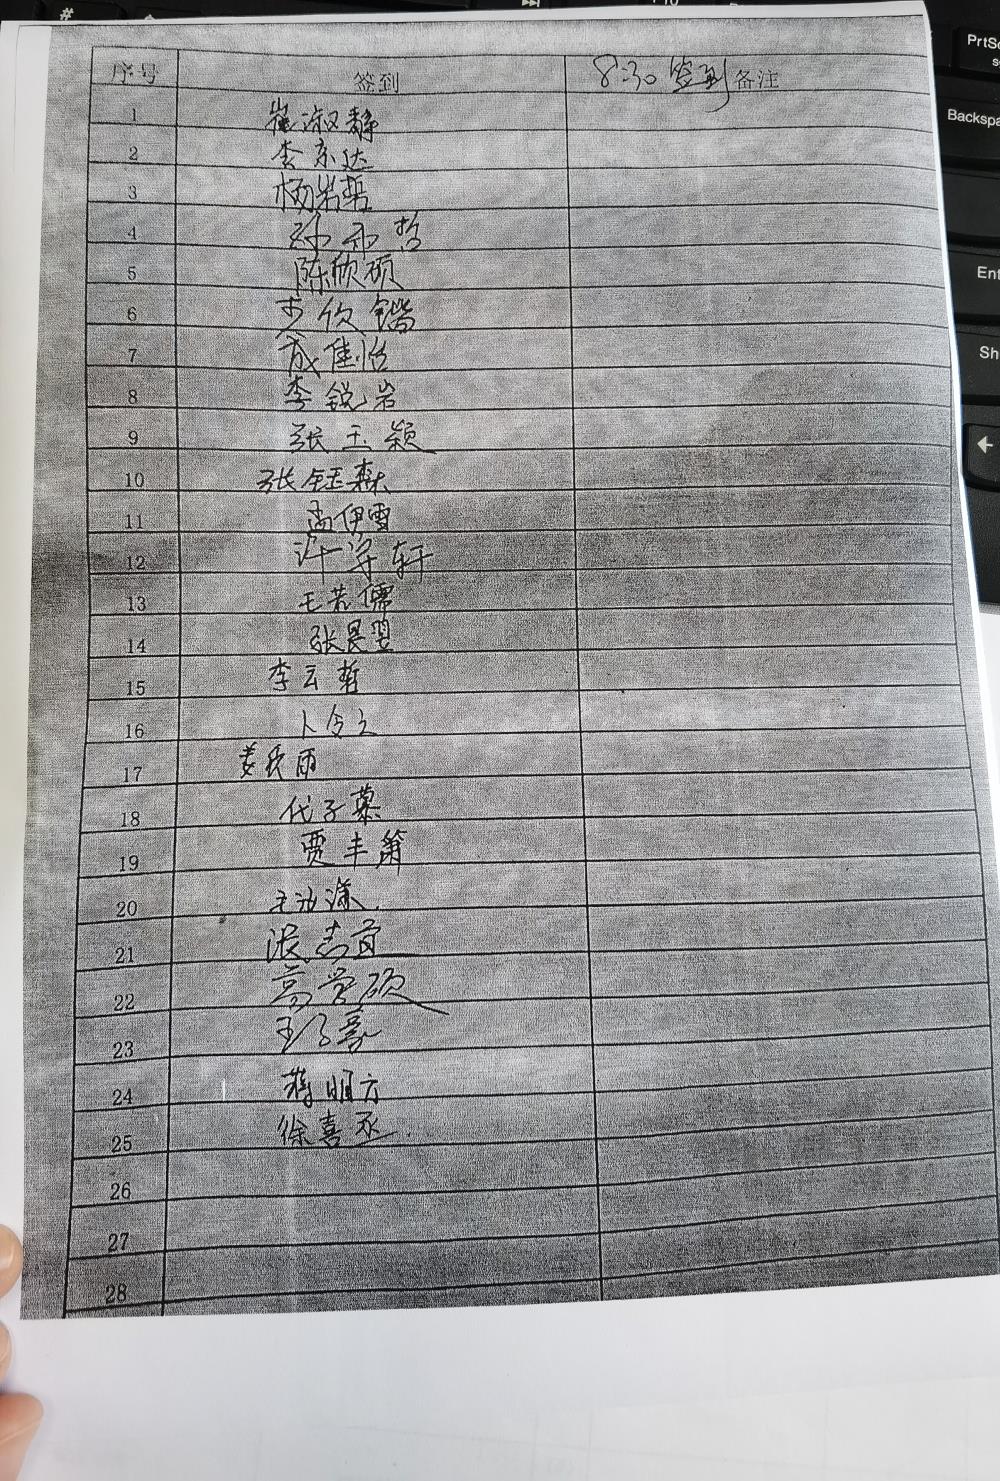 #
PrtSc
Backspa
Ent
Sh
序号 签到 8:30 签到 备注
1 崔淑静
2 李京达
3 杨岩哲
4 孙雨哲
5 陈欣硕
6 欣锴
7 成佳怡
8 李锐岩
9 张玉颖
10 张钰森
11 尚伊雪
12 许梓轩
13 王若儒
14 张晨翌
15 李云哲
16 卜令之
17 姜雨
18 代子慕
19 贾丰箫
20 王
21
22 高硕
23 王豪
24 蒋明方
25 徐喜丞
26
27
28